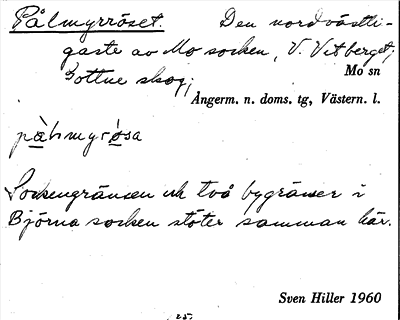 Pålmyrröset. Den nordvästli-
gaste av Mo socken, V. Vitberget;
Gottne skog;
Mo sn
Ångerm. n. doms. tg, Västern. l.
pàlmyrò̀sa
Sockengränsen och två bygränser i
Björna socken stöter samman här.
Sven Hiller 1960